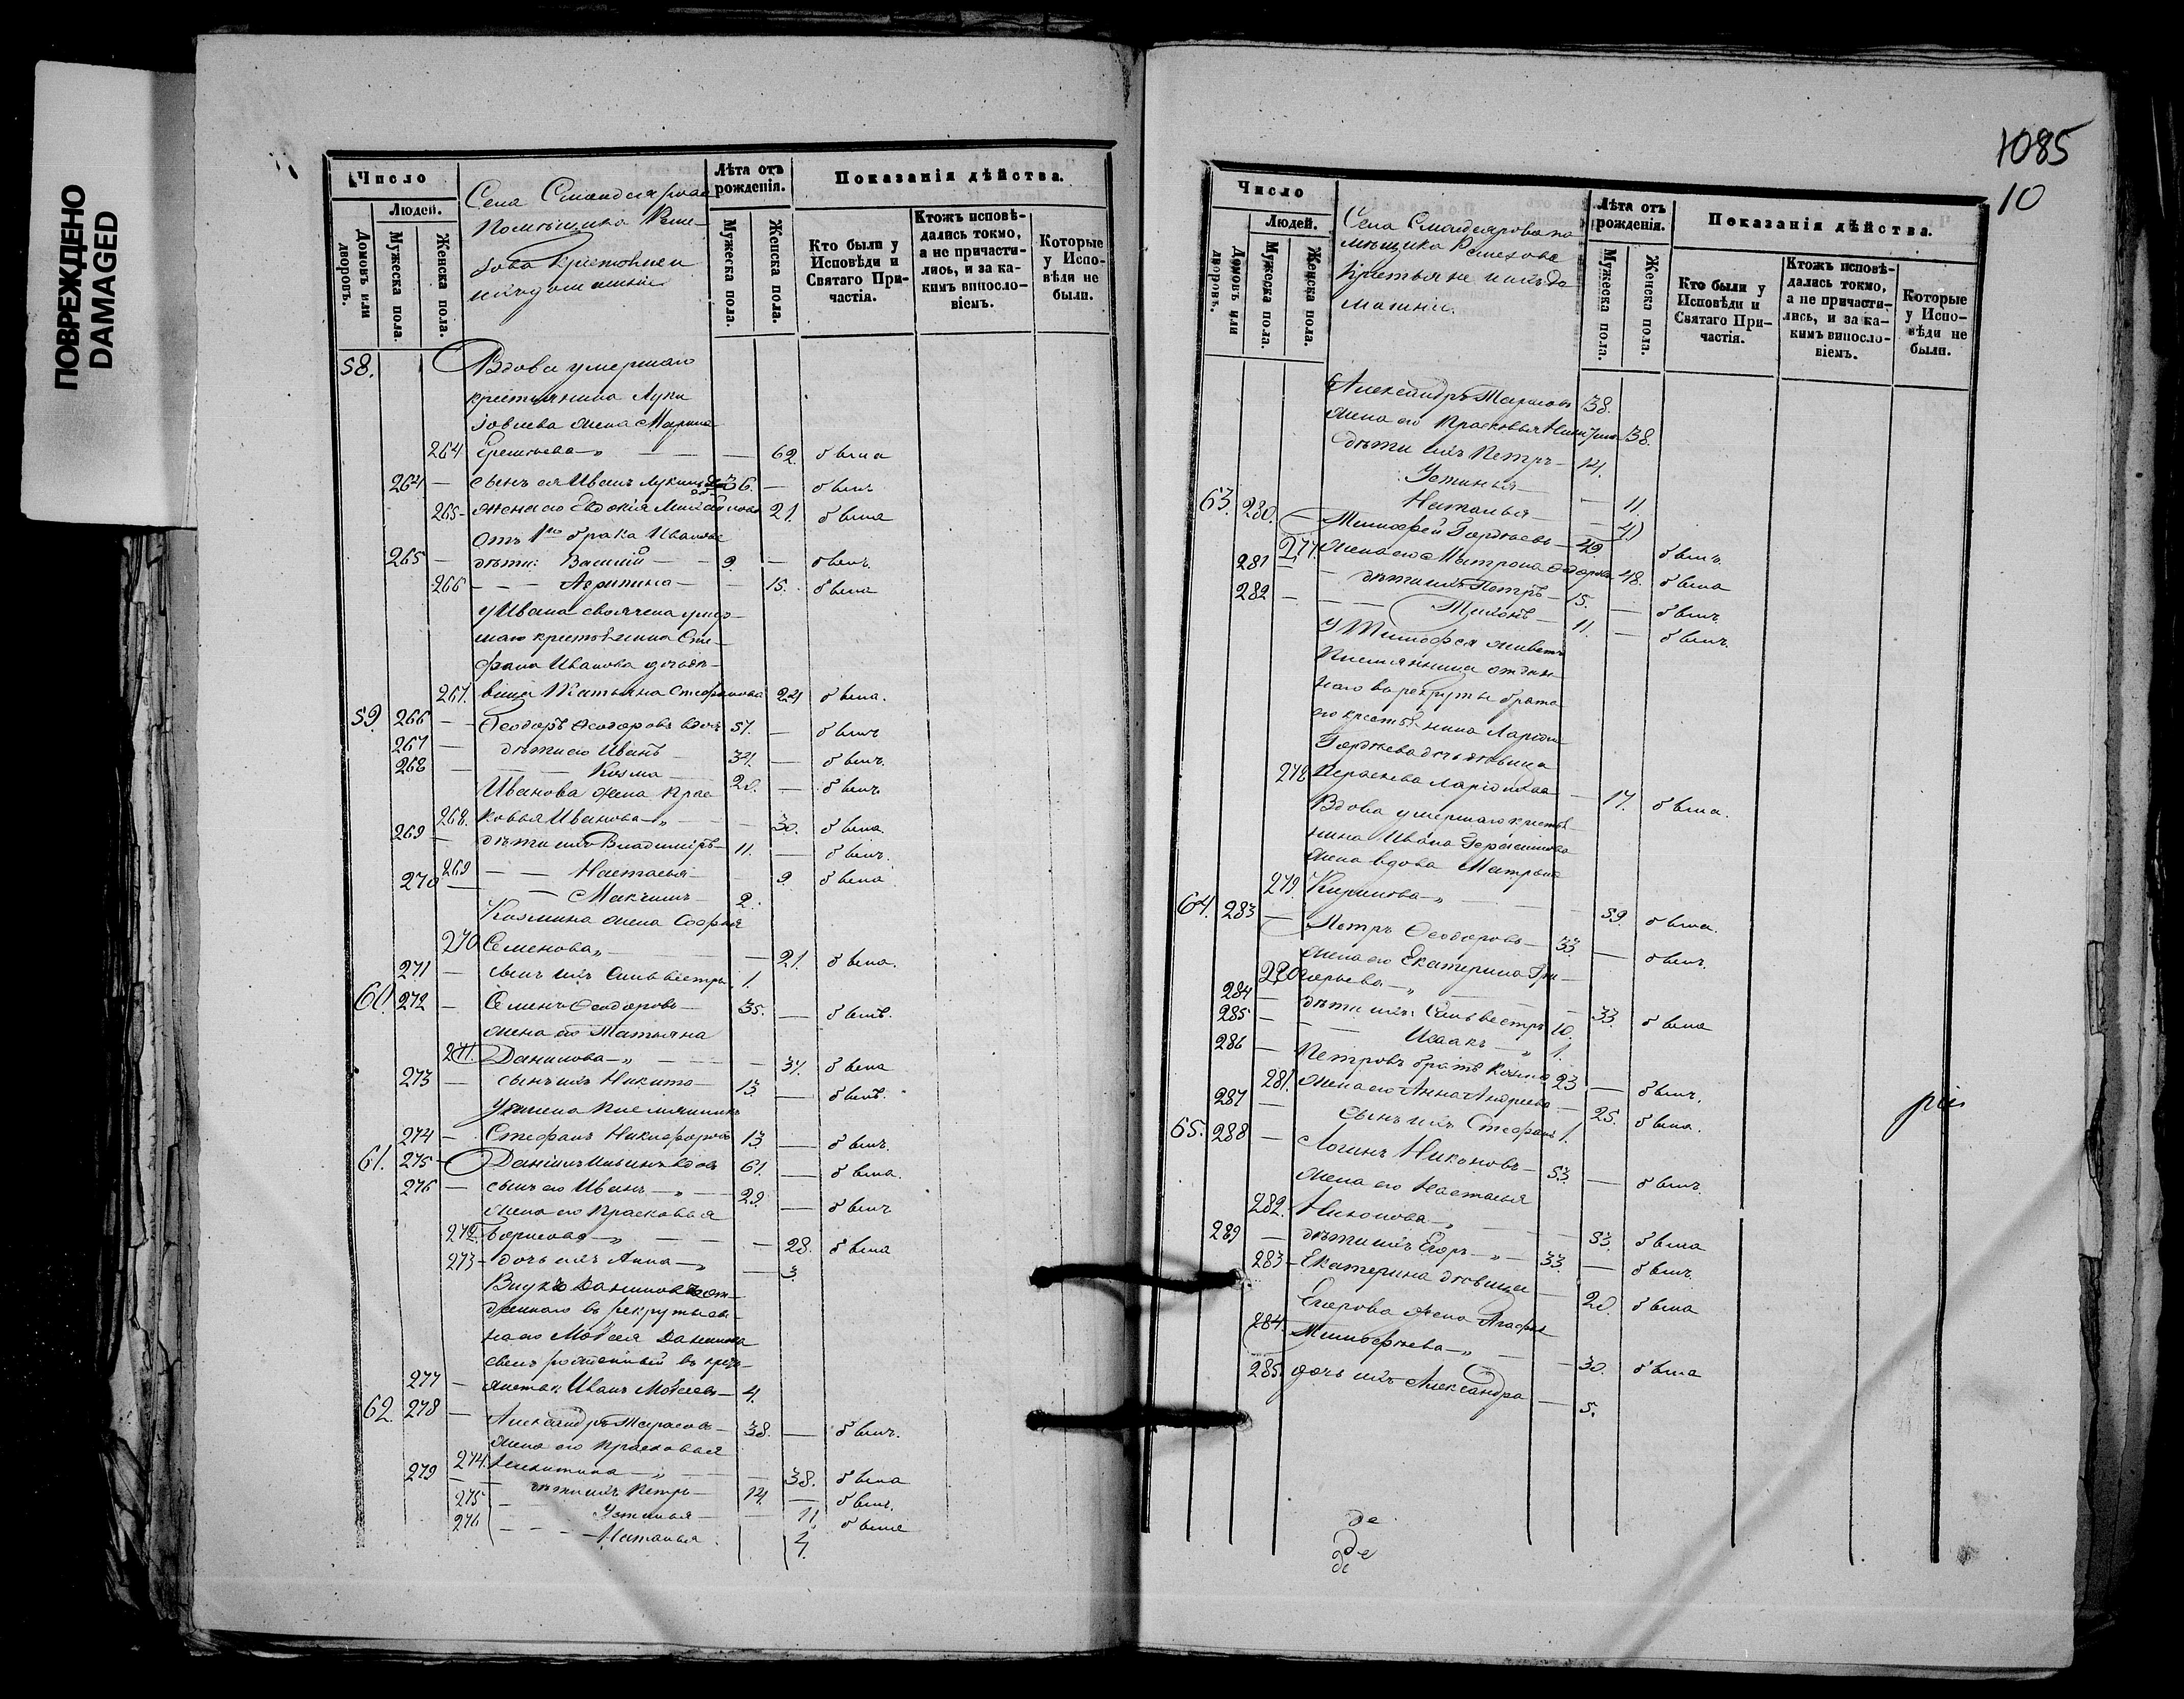 ПОВРЕЖДЕНО
DAMAGED
Число
Людей.
Домовъ или дворовъ.
Мужеска пола.
Женска пола.
Лѣта отъ рожденія.
Мужеска пола.
Женска пола.
Показанія дѣйства.
Кто были у Исповѣди и Святаго Причастія.
Ктожъ исповѣдались токмо, а не причастились, и за какимъ винословіемъ.
Которые у Исповѣди не были.
Села
помѣщика
крестьяне и
ихъ домашніе
58. Вдова умершаго
крестьянина Луки
Іовлева жена Марина
264 62. была
264 — сынъ ея Иванъ Лукинъ 36. — былъ
265 — жена его Евдокія 21. была
отъ 1го брака Ивановы
265 — дѣти: Василій — 9. — былъ
266 — — Агрипина — — 15. была
у Ивана своячена умер-
шаго крестьянина Сте-
фана Иванова дочь дѣ-
267. вица Татьяна Стефанова 24 была.
59. 266 — Ѳеодоръ Ѳеодоровъ вдов 57. — былъ
267 — дѣти его Иванъ 34. — былъ.
268 — — Козма 20. — былъ
Иванова жена Прас-
268. ковья Иванова „ — 30. была
269 — дѣти ихъ Владиміръ — 11. — былъ.
269 — — Настасья — 9. была
270 — — Макчимъ — 2.
Козмина жена Софья
270 Семенова „ — 21. была.
271 — сынъ ихъ Сильвестръ 1.
60. 272 — Семенъ Ѳеодоровъ — 35. — былъ.
жена его Татьяна
271. Данилова — „ — 34. была
273 — сынъ ихъ Никита — 13. — былъ.
племянникъ
274 — Стефанъ Никифоровъ 13 — былъ.
61. 275 — Даніилъ Ильинъ вдов 61. — была.
276 — сынъ его Иванъ — „ — 29. — былъ
жена его Прасковья
272. Борисова — „ — 28. была
273 — дочь ихъ Анна — „ — 3.
Внукъ Даниловъ от-
даннаго въ рекруты сы-
на его Моѵсея Данилова
сынъ рожденный въ крест-
277 — Иванъ Моѵсеевъ — 4.
62. 278 — Александръ Тарасовъ — 38. — былъ.
жена его Прасковья
274. Никитина — „ — 38. была
279 — дѣти ихъ Петръ — 14. — былъ.
275 — Устинья — 11. была
276 — — — Наталья 4.
1085
10
Число
Людей.
Домовъ или дворовъ.
Мужеска пола.
Женска пола.
Лѣта отъ рожденія.
Мужеска пола.
Женска пола.
Показанія дѣйства.
Кто были у Исповѣди и Святаго Причастія.
Ктожъ исповѣдались токмо, а не причастились, и за какимъ винословіемъ.
Которые у Исповѣди не были.
Села по
мѣщика
крестьяне и ихъ до
машніе.
Александръ Тарасовъ 38.
жена его Прасковья Никитина 38.
дѣти ихъ Петръ — 14.
Устинья — — 11.
Наталья — — 4)
63. 280. — Тимофей Гордѣевъ — 49 былъ.
277. жена его Матрона Ѳедорова 48. была
281 — дѣти ихъ Петръ — 15. — былъ.
282 — — Тихонъ — 11. — былъ.
У Тимофея живетъ
племянница отдан-
наго въ рекруты брата
его крестьянина Ларіона
Гордѣева дочь дѣвица
278 Ларіонова — 17. была.
Вдова умершаго кресть-
нина Ивана Герасимова
жена вдова Матрона
279. Кирилова — „ — 59. была.
64. 283 — Петръ Ѳеодоровъ — 33 — былъ.
жена его Екатерина Гри-
280 горьева — „ — 33. была
284 — дѣти ихъ: Сильвестръ 10.
285 — — Исаакъ — „ 1.
286 — Петровъ братъ Козма 23 — былъ.
281. жена его Анна Андреева — 25. была.
287 — сынъ ихъ Стефанъ 1.
65. 288 — Логинъ Никоновъ — 53. — былъ.
жена его Настасья
282. Никонова — „ — 53. была
289 — дѣти ихъ Егоръ — „ — 33. — былъ.
283 — Екатерина дѣвица — 20. была
Егорова жена Агафья
284. Тимофѣева — „ — 30. была
285. дочь ихъ Александра — 5.
де
де
де